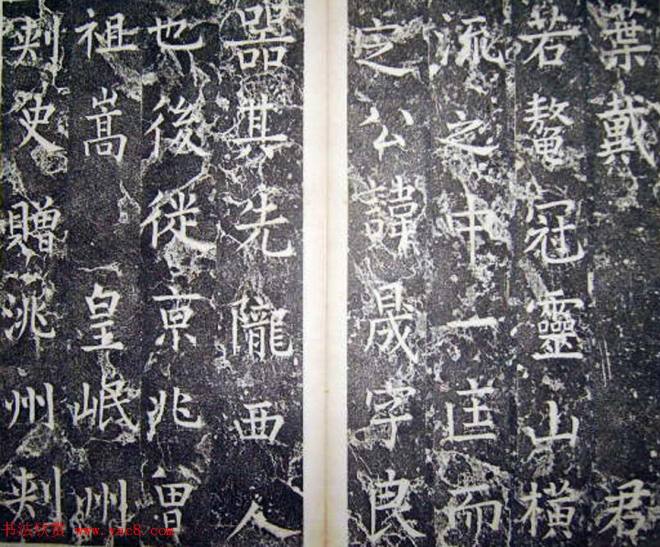 葉戴　君
若鼇冠靈山橫
流之中一匡而
之公諱晟字良
噐其先隴西人
也後徙亰兆曾
祖嵩　皇岷州
刾史贈洮州刾
书法欣赏 www.yac8.com